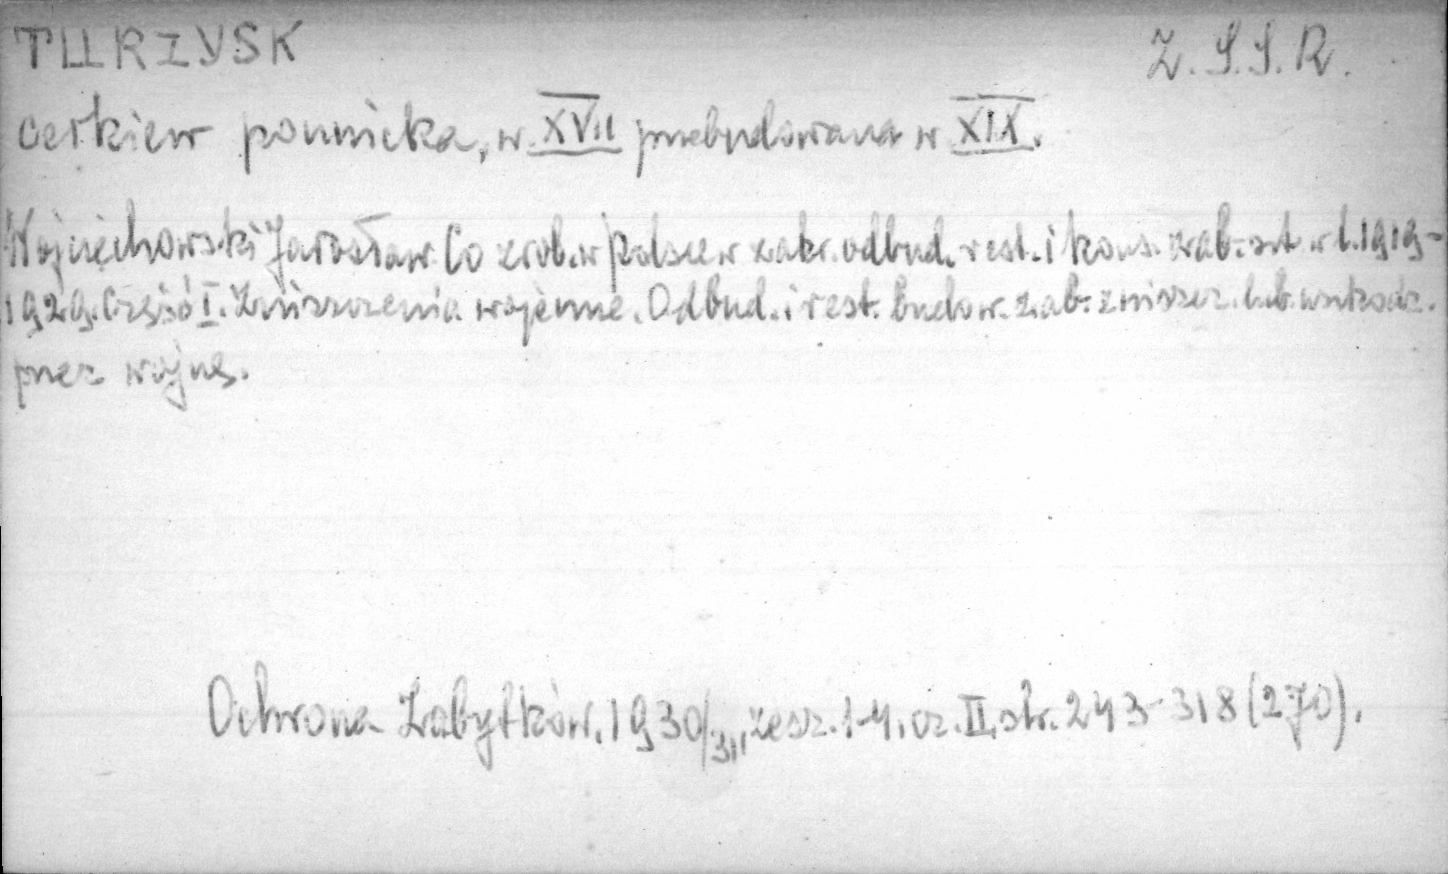 TURZYSK Z.S.S.R.
cerkiew pounicka, w. XVII przebudowana w XIX.
Wojciechowski Jarosław. Co zrob. w Polsce w zakr. odbud. rest. i kons. zab. szt. w l. 1919-
1929. Część I. Zniszczenia wojenne. Odbud. i rest. budow. zab. zniszcz. lub uszkodz.
przez wojnę.
Ochrona Zabytków, 1930/31, zesz. 1-4, cz. II, str. 243-318 (270).